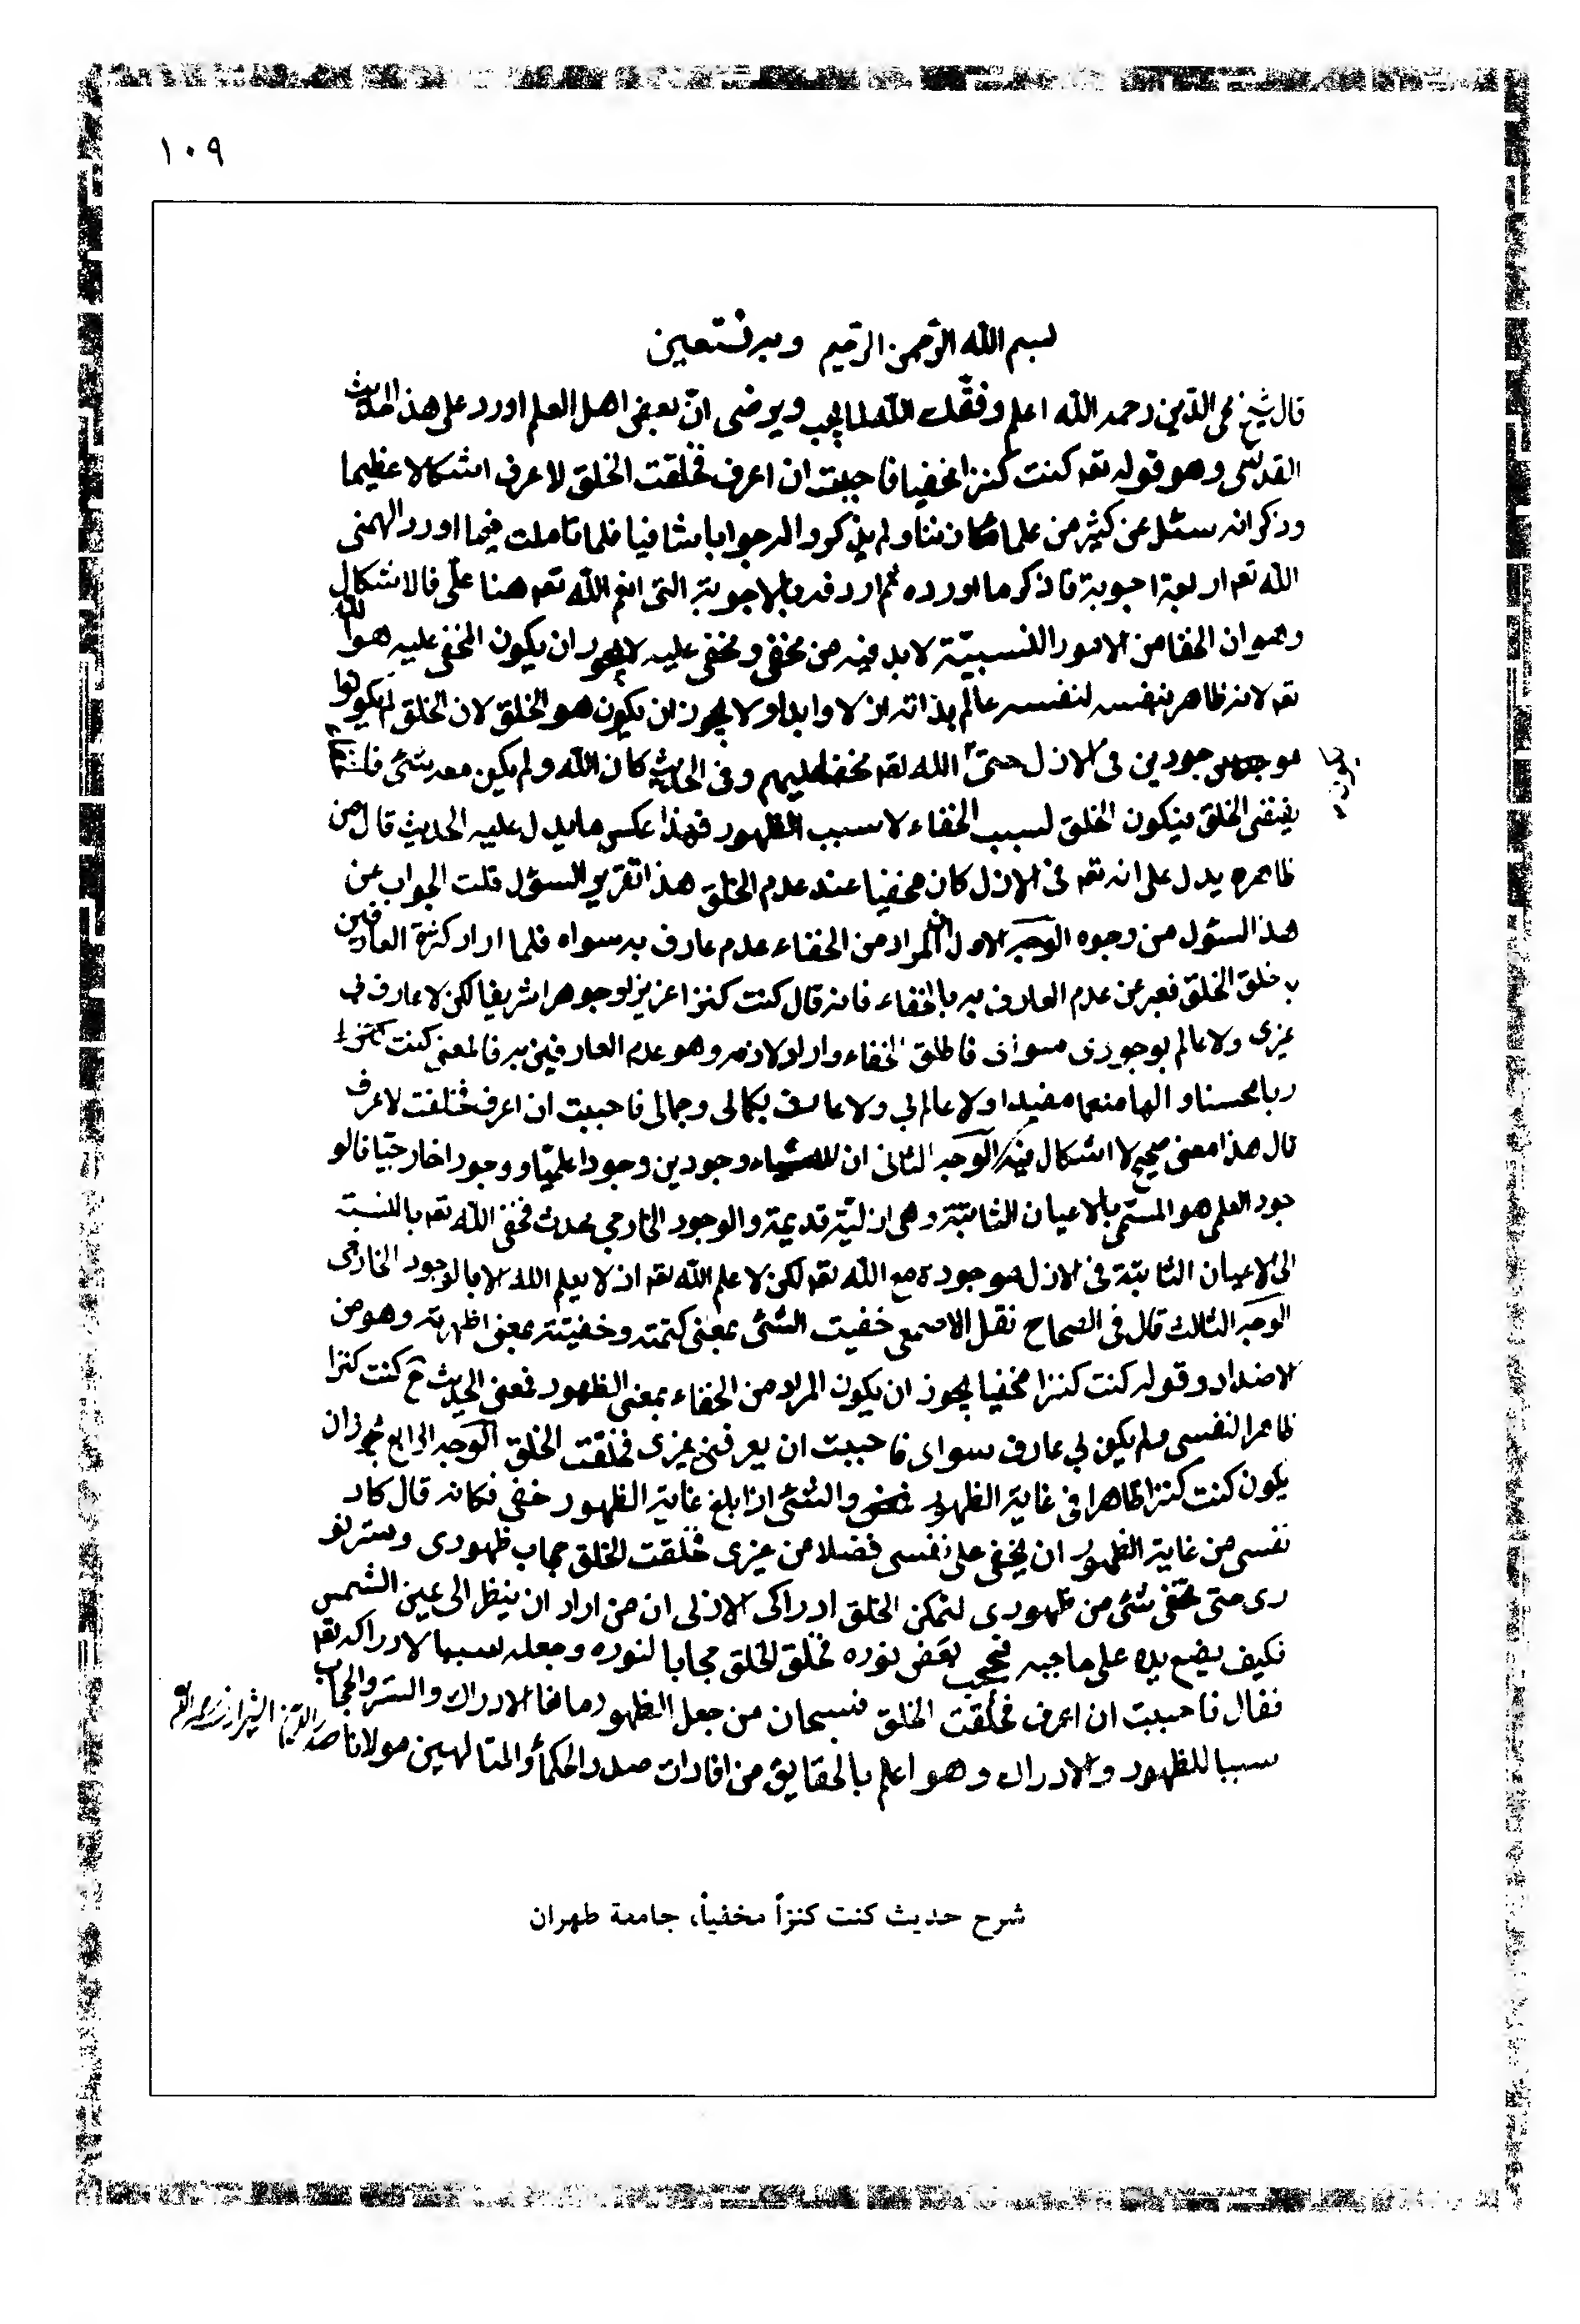 ١٠٩
بسم الله الرحمن الرحيم وبه نستعين
قال شيخ محى الدين رحمه الله اعلم وفقك الله لما يحب ويرضى ان بعض اهل العلم اورد على هذا الحديث
القدسى وهو قوله تعه كنت كنزا مخفيا فاحببت ان اعرف فخلقت الخلق لاعرف اشكالا عظيما
وذكر انه سئل عن كثير من علماء زماننا ولم يذكروا له جوابا شافيا فلما تاملت فيما اورد الهمنى
الله تعه اربعة اجوبة فاذكر ما اورده ثم اردفه بالاجوبة التى انعم الله تعه هنا علّى فالاشكال
وهو ان الخفا من الامور النسبيّة لابد فيه من مخفى ومخفى عليه لا يجوز ان يكون المخفى عليه هو الله
تعه لانه ظاهر بنفسه لنفسه عالم بذاته ازلا وابدا ولا يجوز ان يكون هو الخلق لان الخلق لم يكونوا
موجودين فى الازل حتى الله تعه مخفيا عليهم وفى الحديث كان الله ولم يكن معه شئ
يقتضى الخلق فيكون الخلق لسبب الخفاء لا سبب الظهور فهذا عكس ما يدل عليه الحديث قال من
ظاهره يدل على انه تعه فى الازل كان مخفيا عند عدم الخلق هذا تقرير السؤل قلت الجواب عن
هذ السئول من وجوه الوجه الاول ان المراد من الخفاء عدم عارف به سواه فلما اراد كثرة العارفين
به خلق الخلق فعبر عن عدم العارف به بالخفاء فانه قال كنت كنزا عزيزا وجوهرا شريفا لكن لا عارف لى
غيرى ولا عالم بوجودى سواى فاطلق الخفاء واراد لازمه وهو عدم العارفين به فالمعنى كنت كنزا
ربا محسنا و الها منعما مفيدا ولا عالم لى ولا عارف بكمالى وجمالى فاحببت ان اعرف فخلقت لاعرف
قال هذا معنى صحيح لا اشكال فيه الوجه الثانى ان للاشياء وجودين وجودا علميّا ووجودا خارجيّا فالو
جود العلمى هو المسمى بالاعيان الثابتة وهى ازليّة قديمة والوجود الخارجى محدث فخفى الله تعه بالنسبة
الى الاعيان الثابتة فى الازل موجودة مع الله تعه لكن لا علم الله تعه اذ لا يعلم الله الا بالوجود الخارجى
الوجه الثالث قال فى الصحاح نقل الاصمعى خفيت الشئ بمعنى كتمته وخفيتة بمعنى اظهرته وهو من
الاضداد وقوله كنت كنزا مخفيا يجوز ان يكون المراد من الخفاء بمعنى الظهور فمعنى الحديث ح كنت كنزا
ظاهرا لنفسى ولم يكن لى عارف سواى فاحببت ان يعرفنى غيرى فخلقت الخلق الوجه الرابع يجوز ان
يكون كنت كنزا ظاهرا فى غاية الظهور والشئ اذا بلغ غاية الظهور خفى فكانه قال كاد
نفسى من غاية الظهور ان يخفى على نفسى فضلا من غيرى فخلقت الخلق حجاب ظهورى وستر نو
رى حتى يخفى شئ من ظهورى ليمكن الخلق ادراكى الا ترى ان من اراد ان ينظر الى عين الشمس
فكيف يضع يده على حاجبه فيحجب بعض نوره فخلق الخلق حجابا لنوره وجعله سببا لادراكه تعه
فقال فاحببت ان اعرف فخلقت الخلق فسبحان من جعل الظهور مانعا الادراك والستر والحجاب
سببا للظهور والادراك وهو اعلم بالحقايق من افادات صدر الحكماء والمتالهين مولانا صدر الدين الشيرازى
شرح حديث كنت كنزاً مخفياً، جامعة طهران